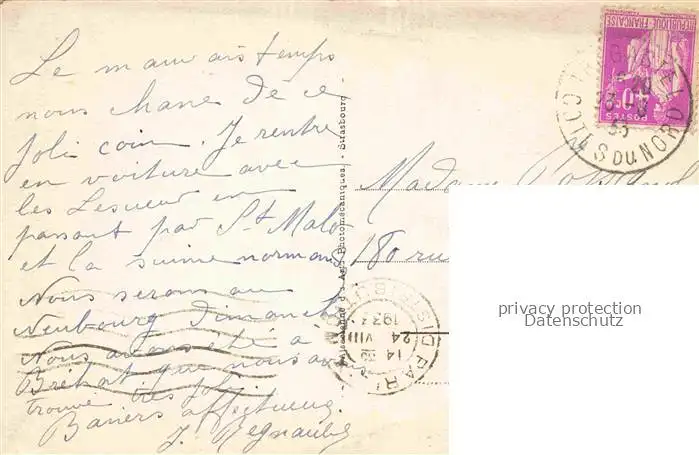 Le mauvais temps
nous chasse de ce
joli coin. Je rentre
en voiture avec
les Lesueur en
passant par St Malo
et la suisse normande
Nous serons au
Neubourg Dimanche
Nous avons été à
Bréhat que nous avons
trouvé très joli.
Baisers affectueux.
J. Regnault
Photomécaniques - Strasbourg
Madame
180 rue
REPUBLIQUE FRANÇAISE
POSTES
COTES DU NORD
PARIS
1933
24 VIII
privacy protection
Datenschutz